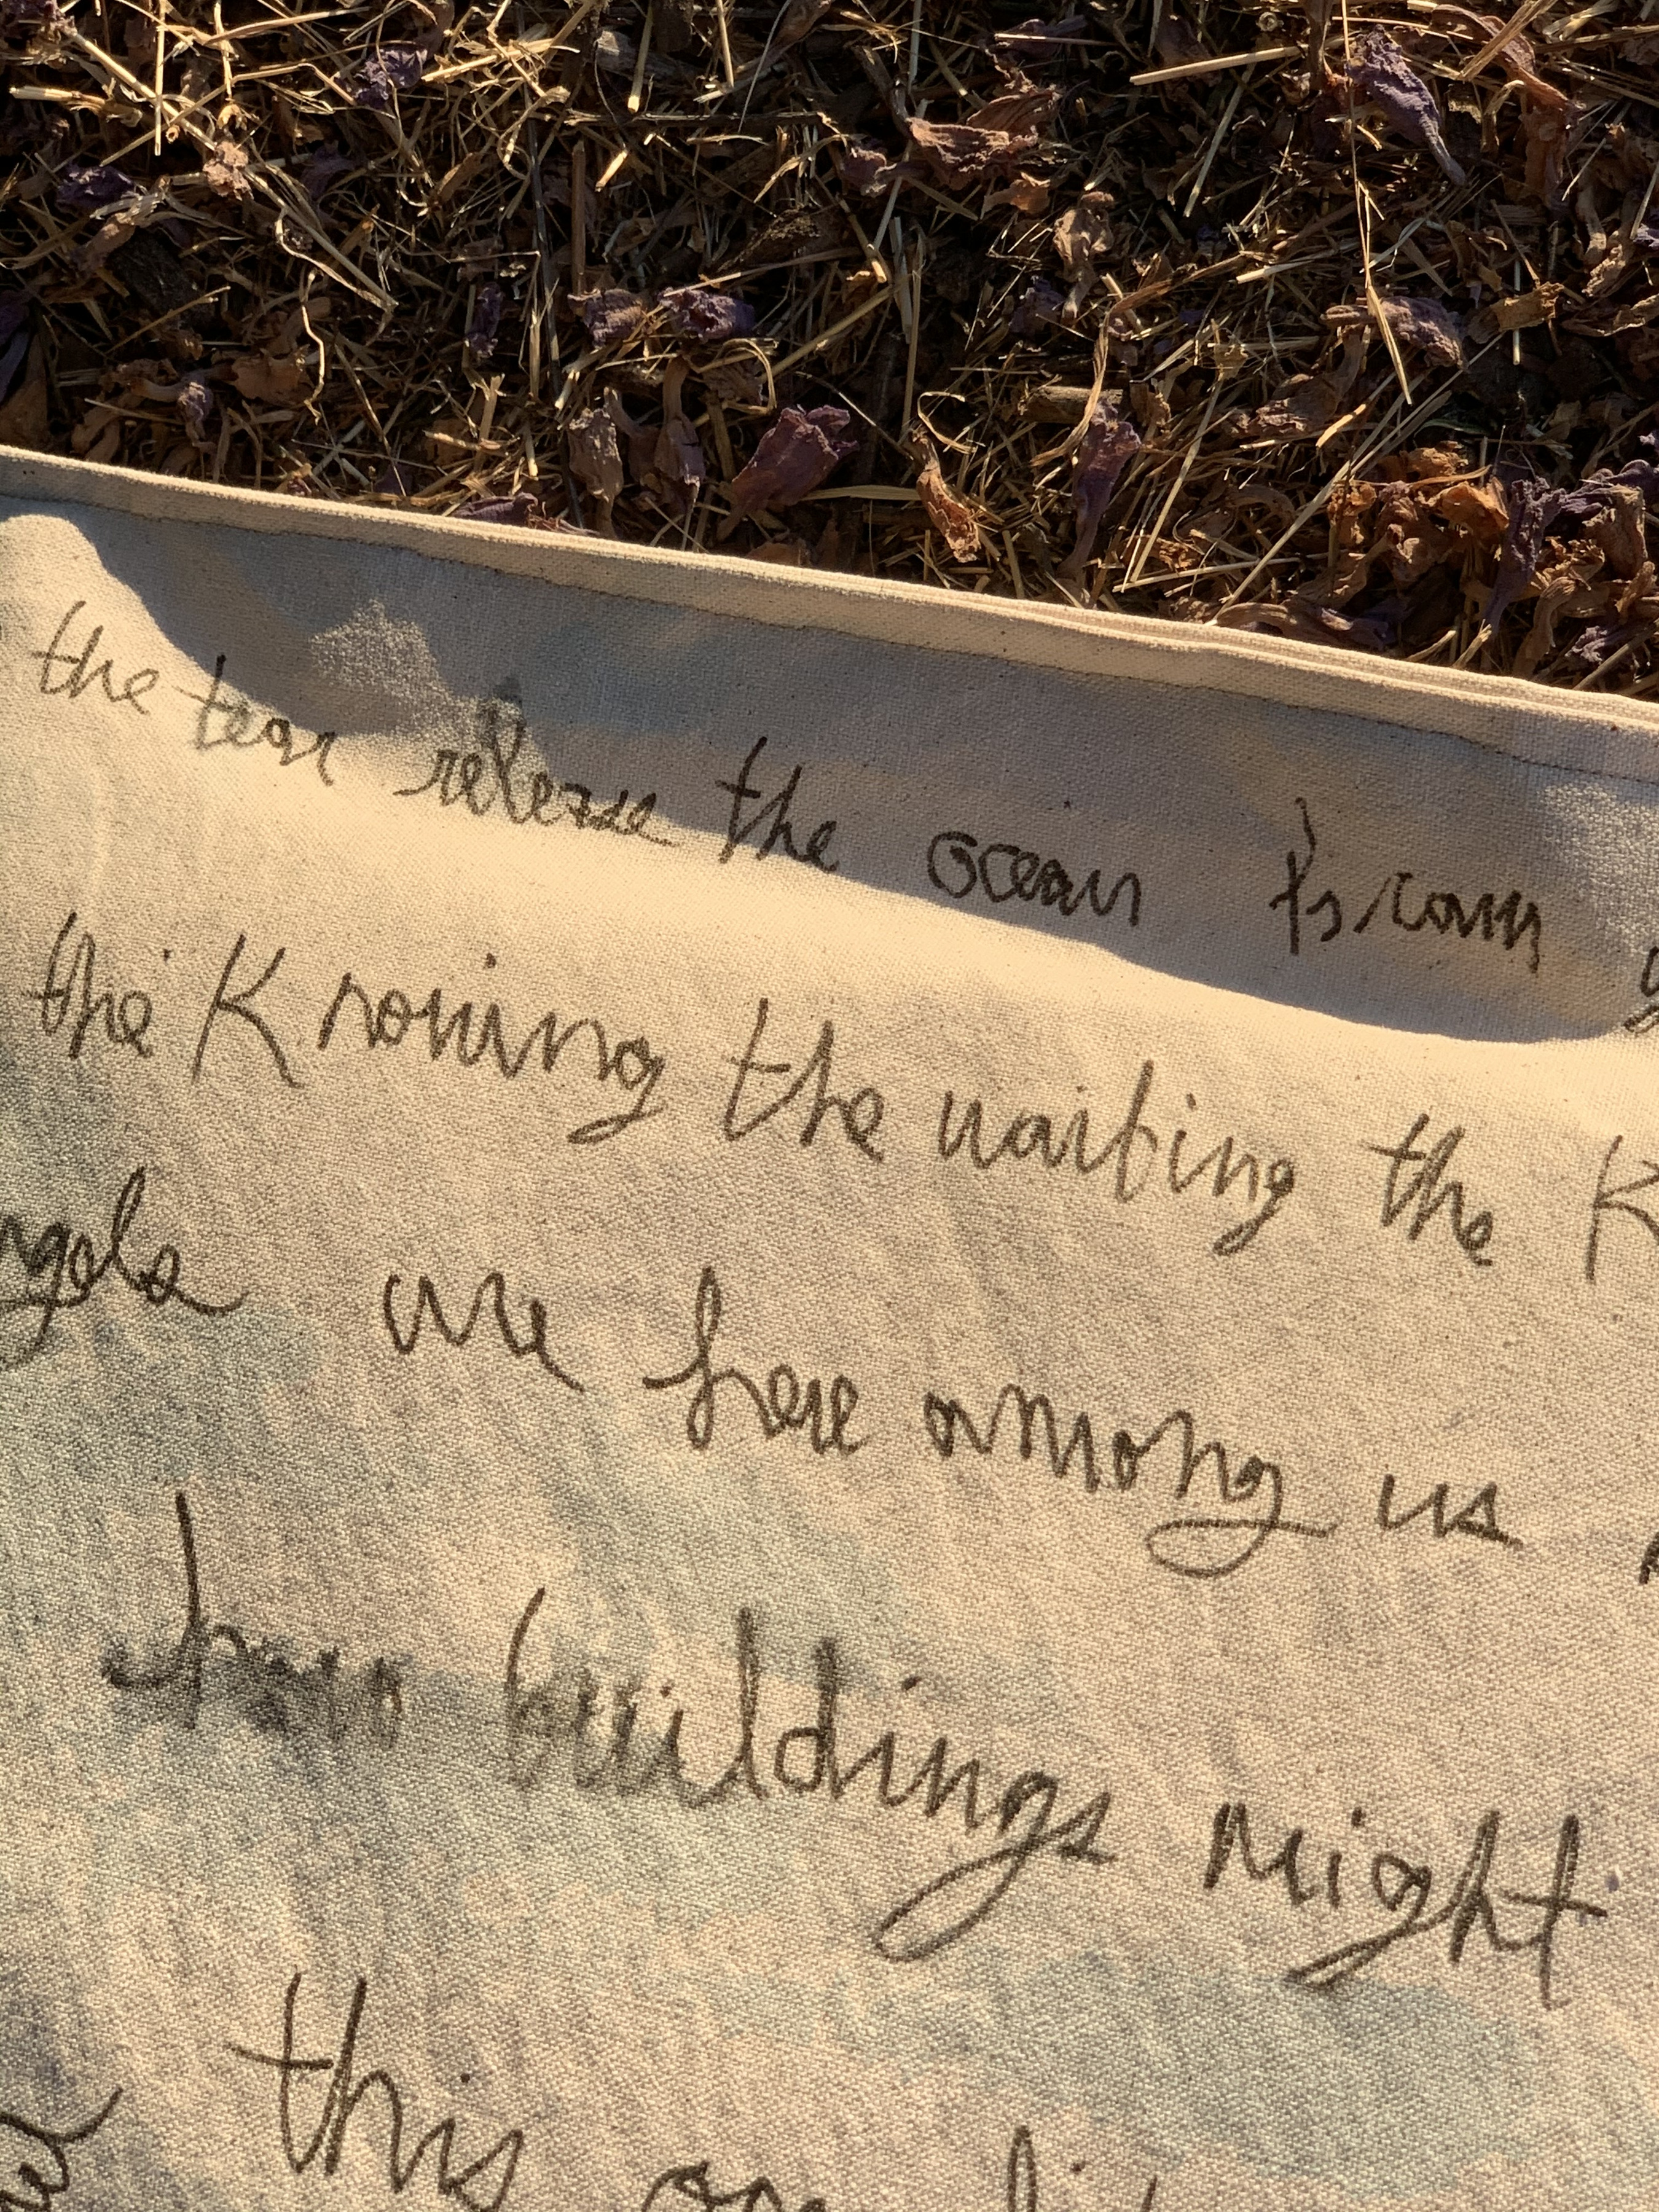 the tear release the ocean from
the Knowing the waiting the K
ngels are here among us
how buildings might
this